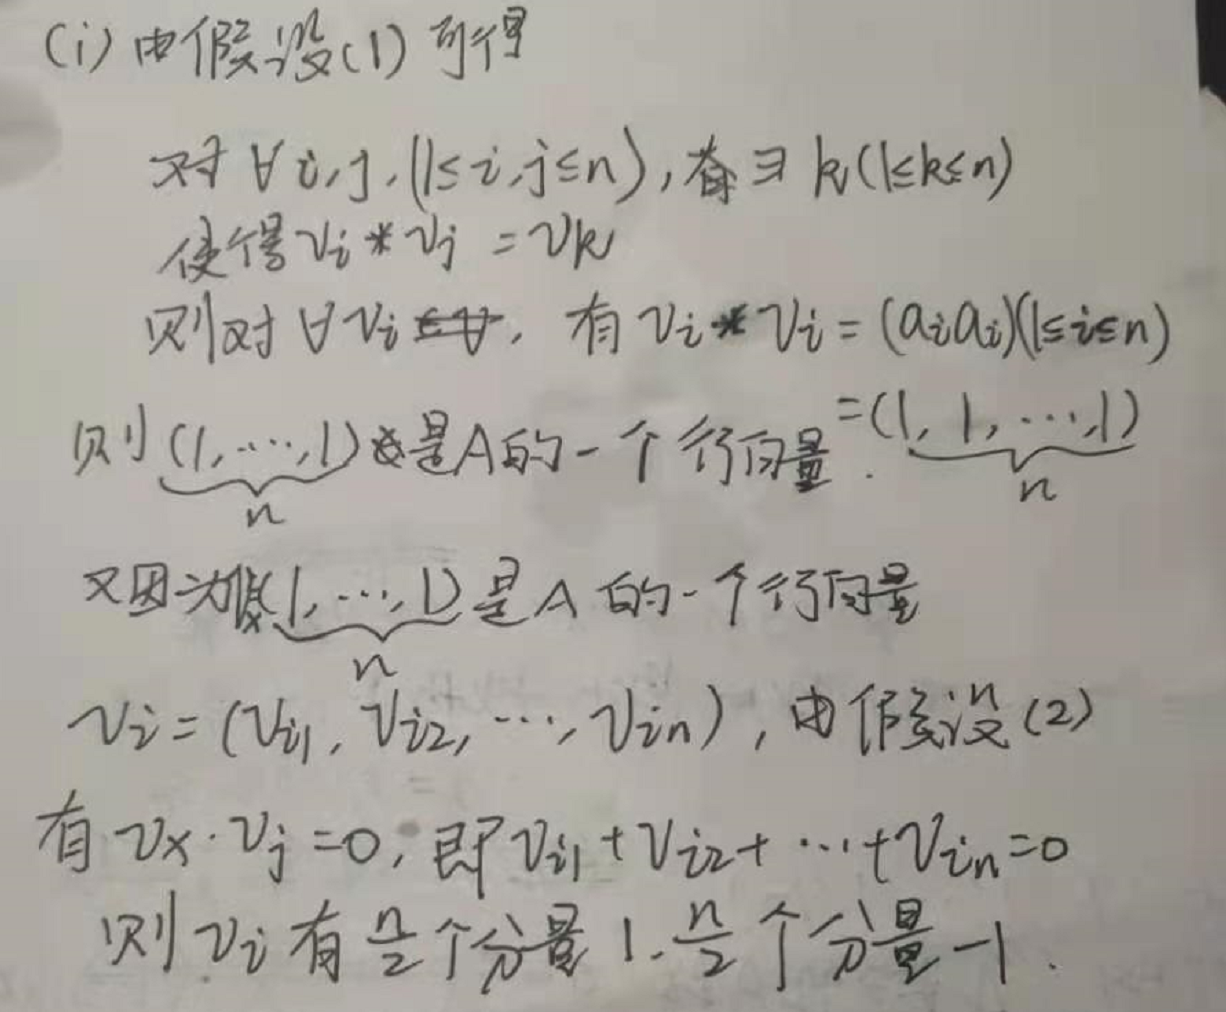 (i) 由假设(1)可得
对∀i,j,(1≤i,j≤n),有∃k(1≤k≤n)
使得vi*vj=vk
则对∀vi,有vi*vi=(aiai)(1≤i≤n)
=(1,1,…,1)
n
则(1,…,1)是A的一个行向量.
n
又因为(1,…,1)是A的一个行向量
n
vi=(vi1,vi2,…,vin),由假设(2)
有vx·vj=0,即vi1+vi2+…+vin=0
则vi有n/2个分量1.n/2个分量-1.